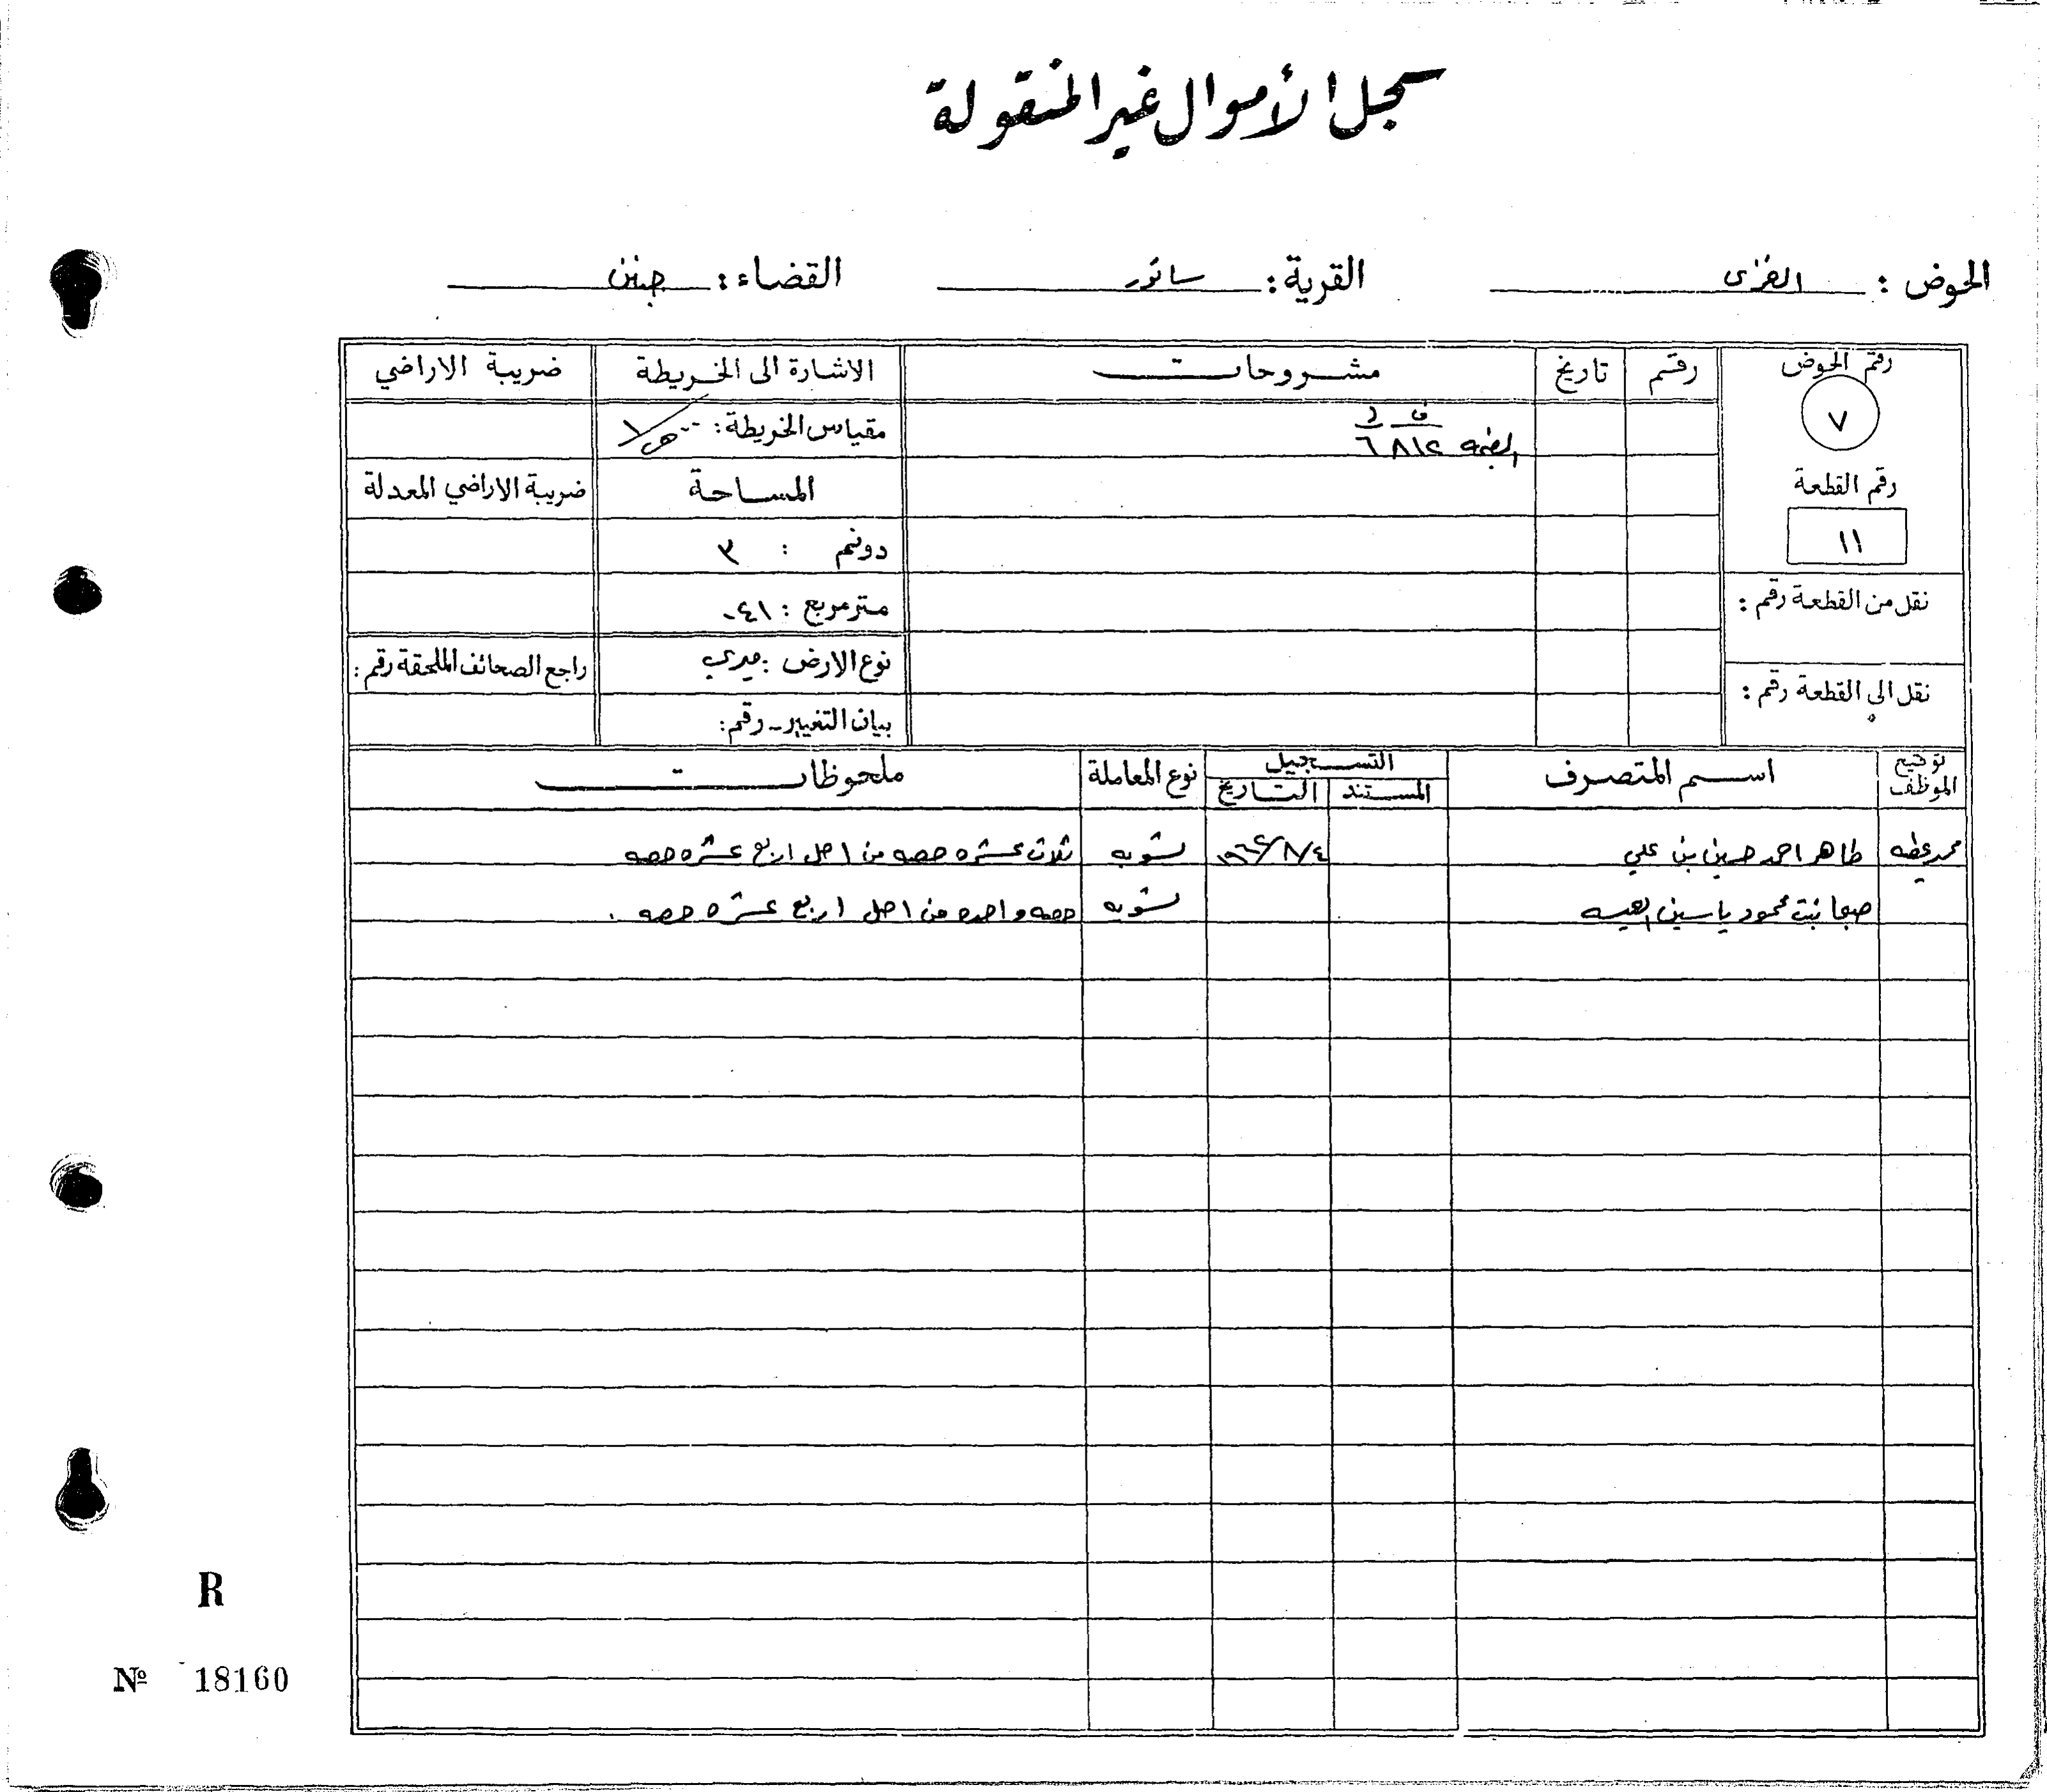 سجل الأموال غير المنقولة
الحوض : القرية : سانور القضاء : جنين
رقم الحوض رقم تاريخ مشروحات الاشارة الى الخريطة ضريبة الاراضي
٧ ف د مقياس الخريطة :
٦ ٨١٢
رقم القطعة المساحة ضريبة الاراضي المعدلة
١١ دونم : ٣
نقل من القطعة رقم : متر مربع : ٠٤١
نوع الارض : ميري راجع الصحائف الملحقة رقم :
نقل الى القطعة رقم : بيان التغيير - رقم :
توقيع الموظف اسم المتصرف التسجيل نوع المعاملة ملحوظات
المستند التاريخ
محمد عطيه طاهر احمد حسين بن علي تسويه ثلاث عشره حصه من اصل اربع عشره حصه
بنت محمود ياسين تسويه حصه واحده من اصل اربع عشره حصه .
R
Nº 18160